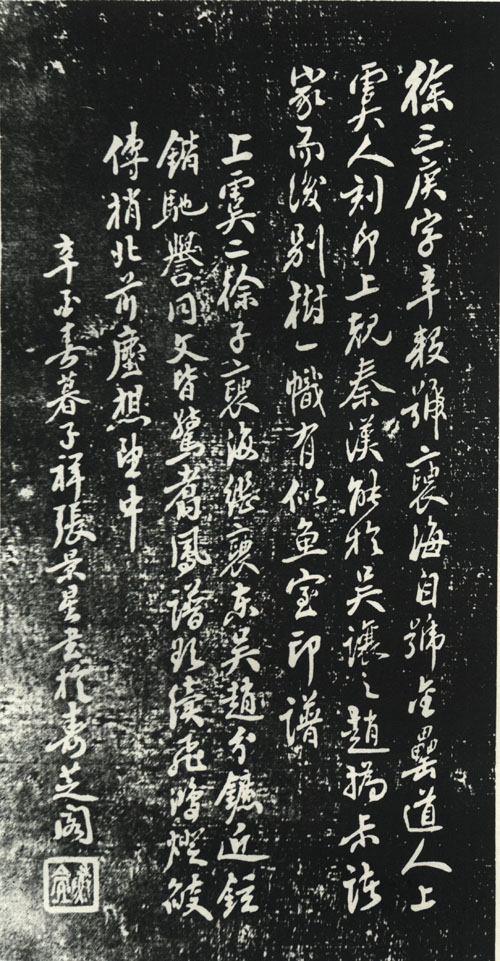 徐三庚字辛穀號褎海自號金罍道人上
虞人刻印上規秦漢能於吳讓之趙撝叔諸
家而後別樹一幟有似魚室印譜
上虞二徐子褎海繼褎東吳趙分鑣近鉉
鍇馳譽同文皆驚翥鳳譜續飛鴻燈
傳北前塵想望中
辛酉春暮子祥張景星書於壽芝閣